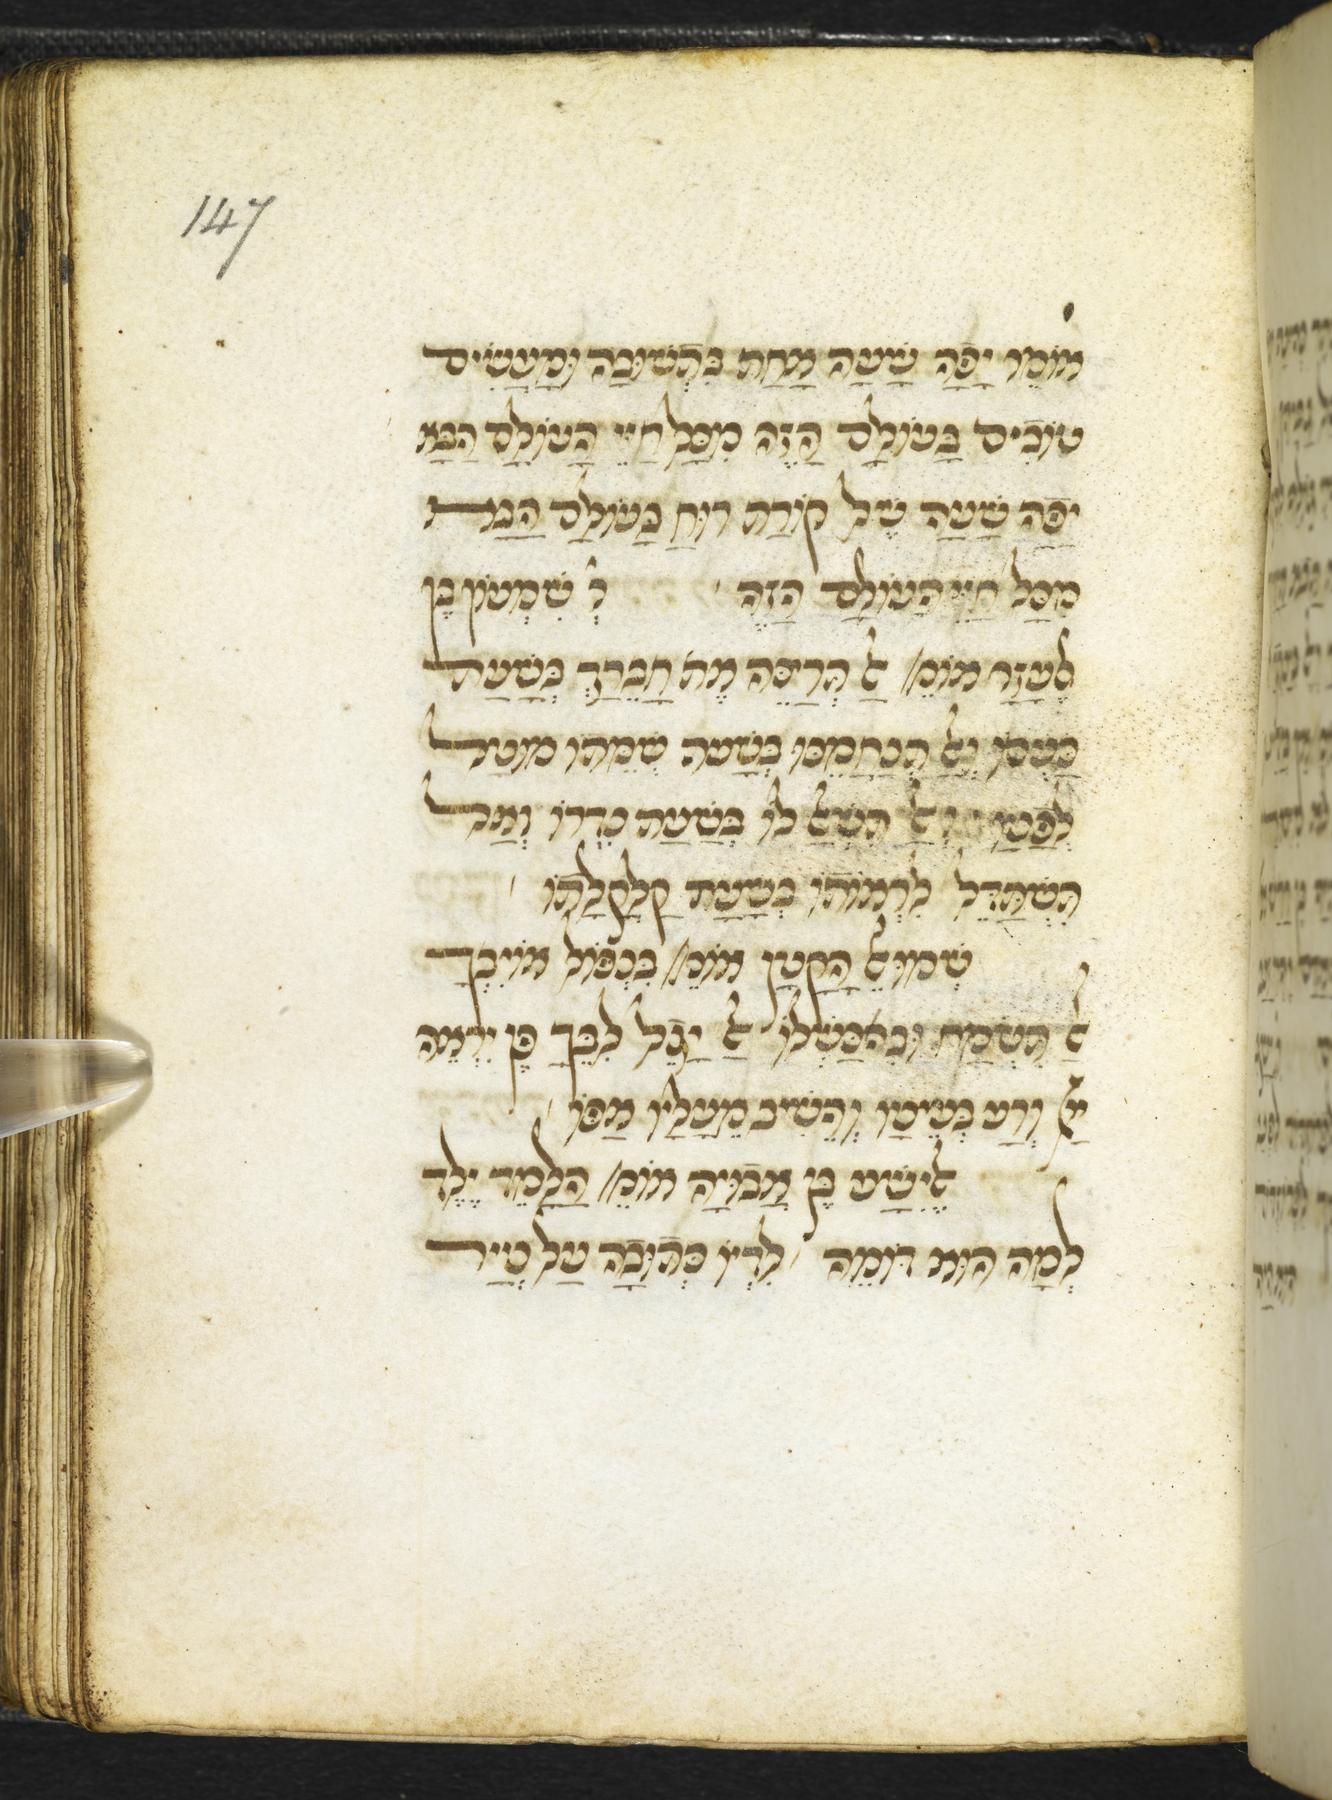 147
אוֹמֵר יָפָה שָׁעָה אַחַת בִּתְשׁוּבָה וּמַעֲשִׂים
טוֹבִים בָּעוֹלָם הַזֶּה מִכָּל חַיֵּי הָעוֹלָם הַבָּא
יָפָה שָׁעָה שֶׁל קוֹרַת רוּחַ בָּעוֹלָם הַבָּא
מִכָּל חַיֵּי הָעוֹלָם הַזֶּה ר' שִׁמְעוֹן בֶּן
אֶלְעָזָר אוֹמֵ' אַל תְּרַצֶּה אֶת חֲבֵרָךְ בְּשָׁעַת
כַּעֲסוֹ וְאַל תְּנַחֲמֵהוּ בְּשָׁעָה שֶׁמֵּתוֹ מוּטָל
לְפָנָיו וְאַל תִּשְׁאַל לוֹ בְּשָׁעַת נִדְרוֹ וְאַל
תִּשְׁתַּדֵּל לִרְאוֹתוֹ בְּשָׁעַת קַלְקָלָתוֹ
שְׁמוּאֵל הַקָּטָן אוֹמֵ' בִּנְפוֹל אוֹיִבְךָ
אַל תִּשְׂמַח וּבִכָּשְׁלוֹ אַל יָגֵל לִבֶּךָ פֶּן יִרְאֶה
יְיָ וְרַע בְּעֵינָיו וְהֵשִׁיב מֵעָלָיו אַפּוֹ
אֱלִישָׁע בֶּן אֲבוּיָה אוֹמֵ' הַלָּמֵד יֶלֶד
לְמָה הוּא דּוֹמֶה לִדְיוֹ כְּתוּבָה עַל נְיָיר